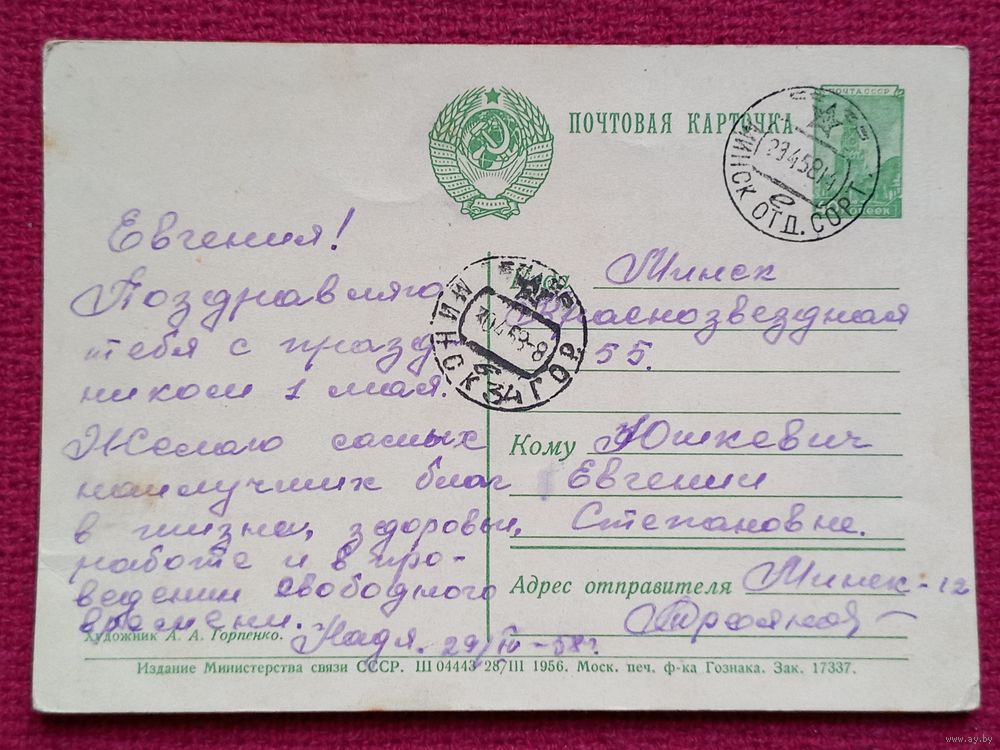 ПОЧТОВАЯ КАРТОЧКА
ПОЧТА СССР
МИНСК ОТД. СОРТ.
29458
Евгения!
Поздравляю
тебя с празд
ником 1 мая.
Желаю самых
наилучших благ
в жизни, здоровьи,
работе и в про-
ведении свободного
времени.
Надя. 29/IV-58г.
МИНСК
Минск
Краснозвездная
55.
Кому Юшкевич
Евгении
Степановне.
Адрес отправителя Минск-12
Художник А. А. Горпенко.
Издание Министерства связи СССР. Ш 04443 28/III 1956. Моск. печ. ф-ка Гознака. Зак. 17337.
www.ay.by